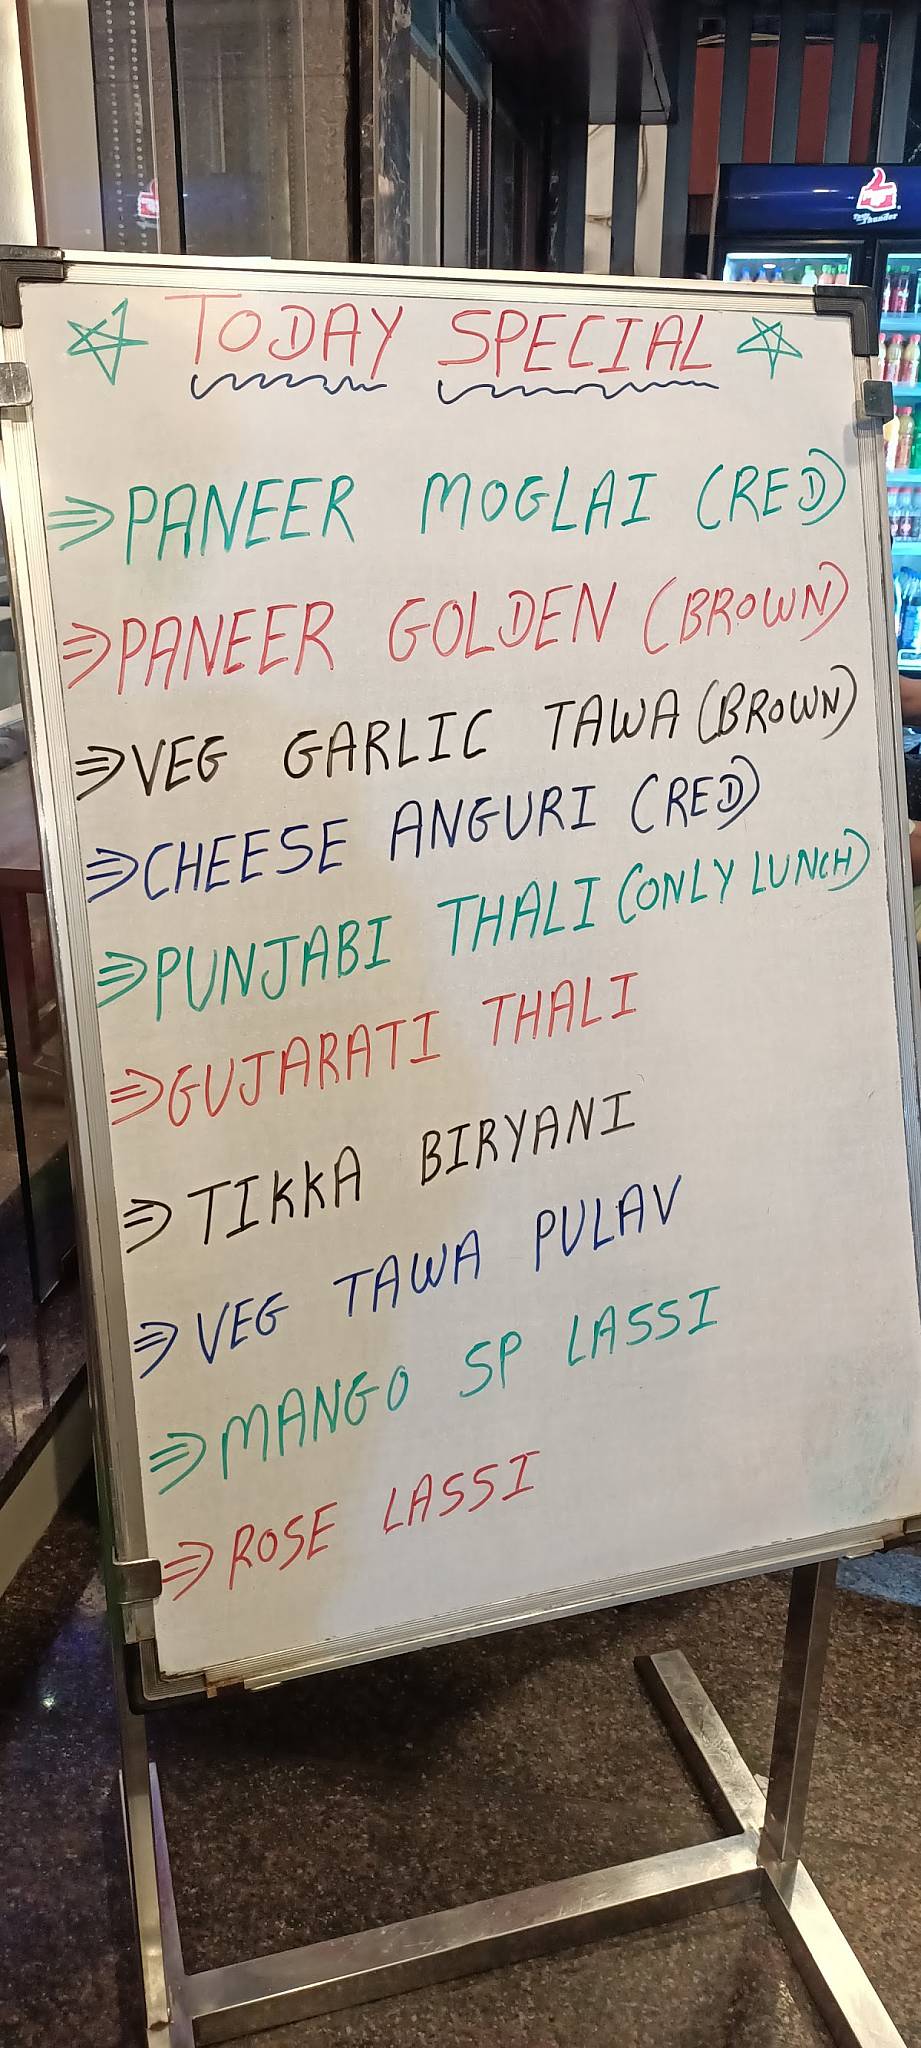 TODAY SPECIAL
⇒PANEER MOGLAI (RED)
⇒PANEER GOLDEN (BROWN)
⇒VEG GARLIC TAWA (BROWN)
⇒CHEESE ANGURI (RED)
⇒PUNJABI THALI (ONLY LUNCH)
⇒GUJARATI THALI
⇒TIKKA BIRYANI
⇒VEG TAWA PULAV
⇒MANGO SP LASSI
⇒ROSE LASSI